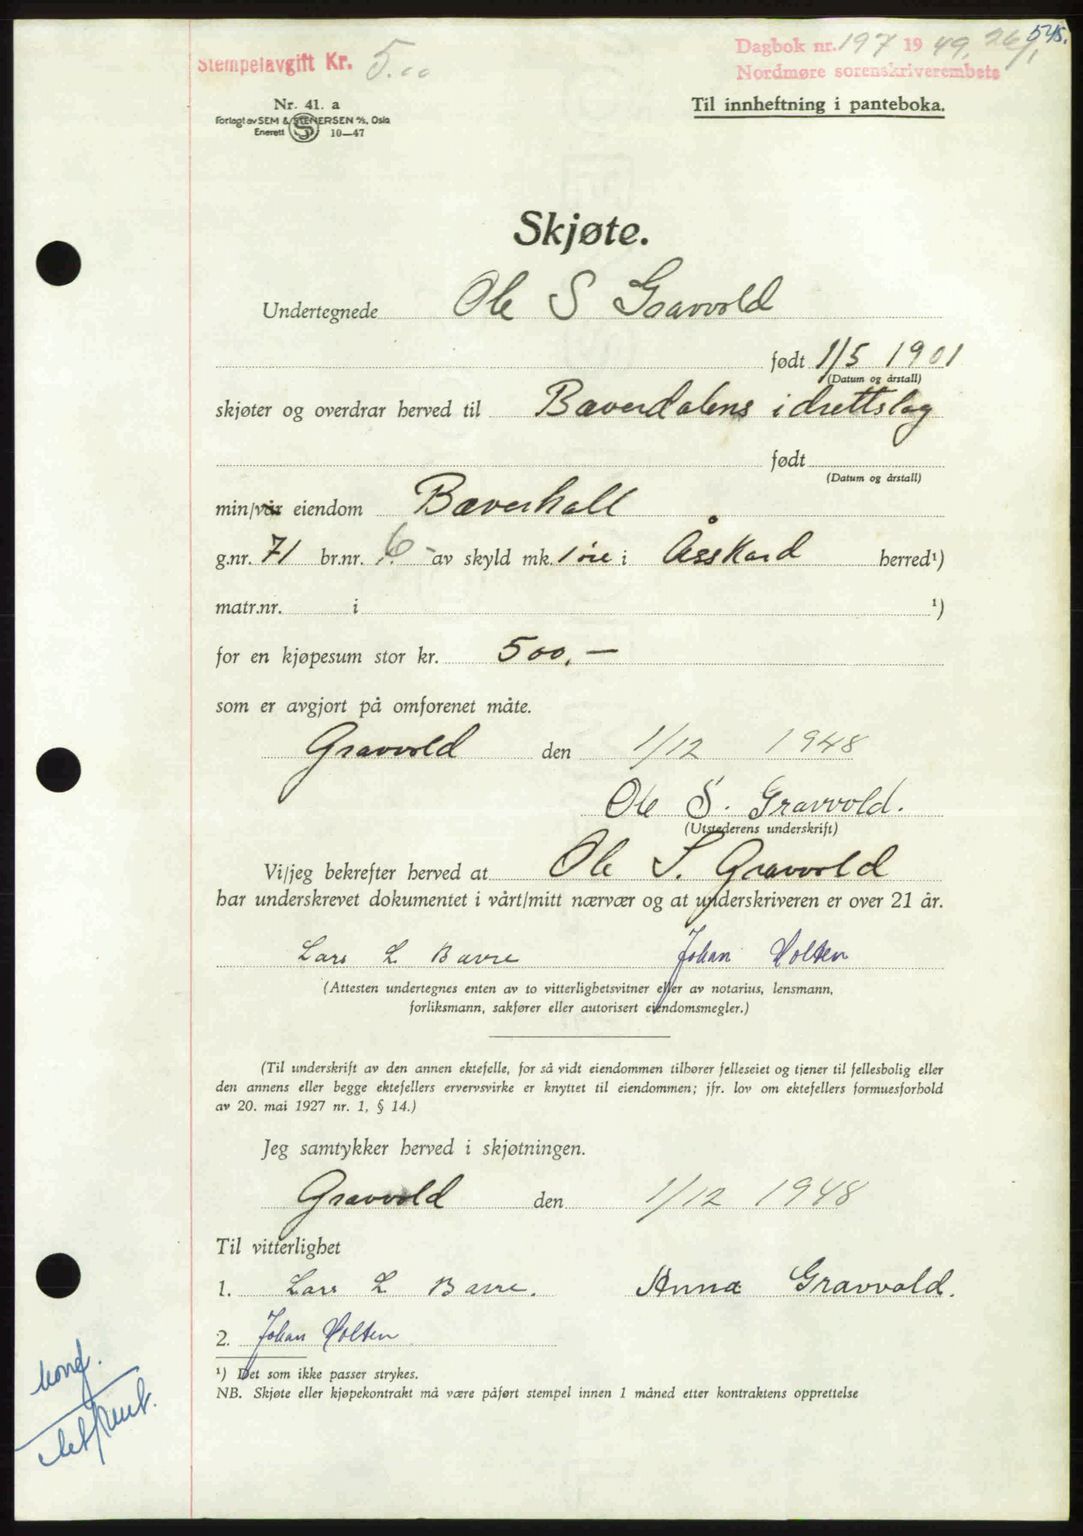 545.
Stempelavgift Kr. 5.00
Dagbok nr. 197 1949, 26/1
Nordmøre sorenskriverembete
Nr. 41. a
Forlagt av SEM & STENERSEN A/S, Oslo
Enerett S 10—47
Til innheftning i panteboka.
Skjøte.
Undertegnede Ole S Gravvold
født 1/5 1901
(Datum og årstall)
skjøter og overdrar herved til Bæverdalens idrettslag
født
(Datum og årstall)
min/vår eiendom Bæverhall
g.nr. 71 br.nr. 6 av skyld mk. 1 øre i Åsskard herred¹)
matr.nr. i ¹)
for en kjøpesum stor kr. 500,—
som er avgjort på omforenet måte.
Gravvold den 1/12 1948
Ole S. Gravvold.
(Utstederens underskrift)
Vi/jeg bekrefter herved at Ole S. Gravvold
har underskrevet dokumentet i vårt/mitt nærvær og at underskriveren er over 21 år.
Lars L Bævre Johan Holten
(Attesten undertegnes enten av to vitterlighetsvitner eller av notarius, lensmann,
forliksmann, sakfører eller autorisert eiendomsmegler.)
(Til underskrift av den annen ektefelle, for så vidt eiendommen tilhører felleseiet og tjener til fellesbolig eller
den annens eller begge ektefellers ervervsvirke er knyttet til eiendommen; jfr. lov om ektefellers formuesforhold
av 20. mai 1927 nr. 1, § 14.)
Jeg samtykker herved i skjøtningen.
Gravvold den 1/12 1948
Til vitterlighet
1. Lars L Bævre. Anna Gravvold.
2. Johan Holten
¹) Det som ikke passer strykes.
NB. Skjøte eller kjøpekontrakt må være påført stempel innen 1 måned etter kontraktens opprettelse